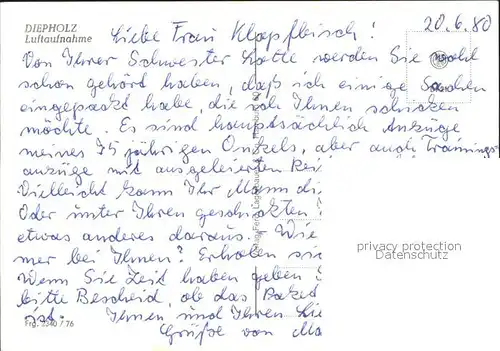 DIEPHOLZ
Luftaufnahme
20.6.80
Liebe Frau Klopfleisch!
Von Ihrer Schwester Lotte werden Sie wohl
schon gehört haben, daß ich einige Sachen
eingepackt habe, die ich Ihnen schicken
möchte. Es sind hauptsächlich Anzüge
meines 75 jährigen Onkels, aber auch Trainings-
anzüge mit ausgeleierten Rei
Vielleicht kann Ihr Mann di
Oder unter Ihren geschickten
etwas anderes daraus. Wie
mer bei Ihnen? Erholen sie
Wenn Sie Zeit haben geben
bitte Bescheid, ob das Paket
ist. Ihnen und Ihren Lie
Grüße von Ma
Frg. 7340 / 76
privacy protection
AnsichtskartenLexikon.de